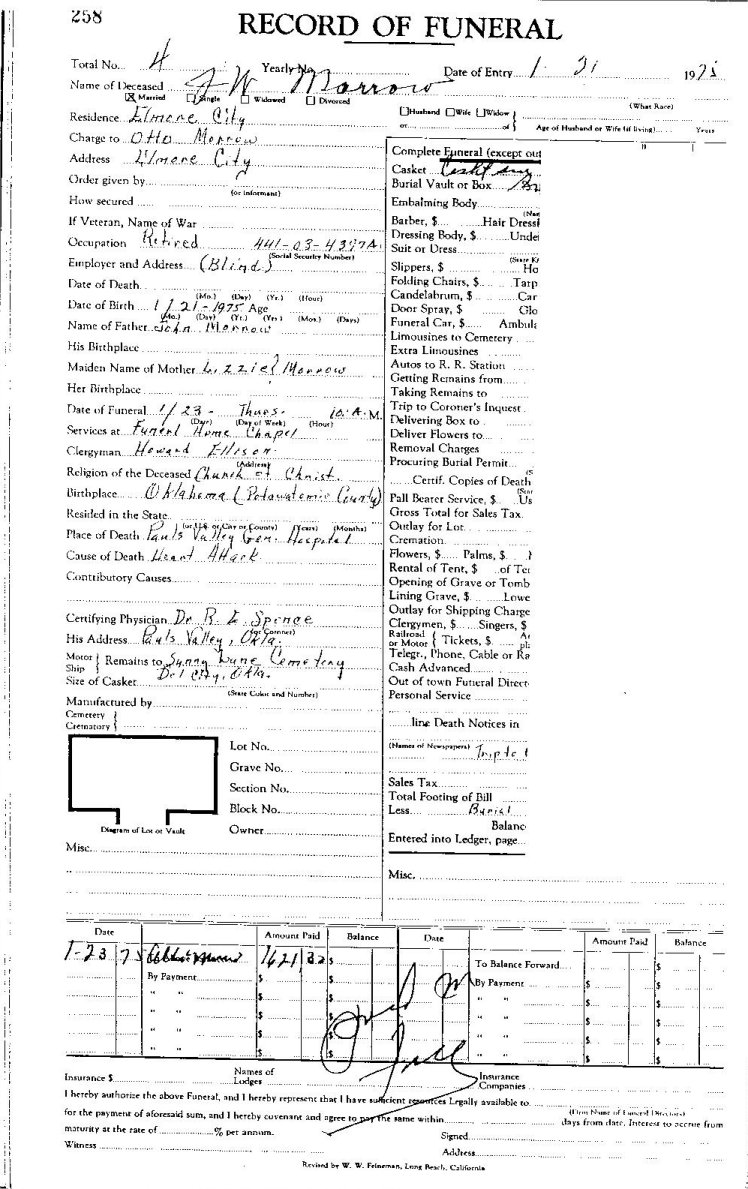 258
RECORD OF FUNERAL
Total No. 4 Yearly No. Date of Entry 1 21 1975
Name of Deceased J W Morrow
☒ Married ☐ Single ☐ Widowed ☐ Divorced
(What Race)
Residence Elmore City
☐Husband ☐Wife ☐Widow }
or of } Age of Husband or Wife (if living) Years
Charge to Otto Morrow
Address Elmore City
Order given by
(or informant)
How secured
If Veteran, Name of War
Occupation Retired 441-03-4397A
(Social Security Number)
Employer and Address (Blind)
Date of Death
(Mo.) (Day) (Yr.) (Hour)
Date of Birth 1/21-1975 Age
(Mo.) (Day) (Yr.) (Yrs.) (Mos.) (Days)
Name of Father John Morrow
His Birthplace
Maiden Name of Mother Lizzie Morrow
Her Birthplace
Date of Funeral 1/23- Thurs. 10:A.M.
(Day) (Day of Week) (Hour)
Services at Funeral Home Chapel
Clergyman Howard Ellison
(Address)
Religion of the Deceased Church of Christ
Birthplace Oklahoma (Potawatomie County)
Resided in the State
(or U.S. or City or County) (Years) (Months)
Place of Death Pauls Valley Gen. Hospital
Cause of Death Heart Attack
Contributory Causes
Certifying Physician Dr R. E. Spence
(or Coroner)
His Address Pauls Valley, Okla.
Motor } Remains to Sunny Lane Cemetery
Ship } Del City, Okla.
Size of Casket
(State Color and Number)
Manufactured by
Cemetery }
Crematory }
Lot No.
Grave No.
Section No.
Block No.
Owner
Diagram of Lot or Vault
Misc.
Complete Funeral (except out
Casket
Burial Vault or Box
Embalming Body
Barber, $ Hair Dress
Dressing Body, $ Unde
Suit or Dress
Slippers, $ Ho
Folding Chairs, $ Tarp
Candelabrum, $ Car
Door Spray, $ Glo
Funeral Car, $ Ambula
Limousines to Cemetery
Extra Limousines
Autos to R. R. Station
Getting Remains from
Taking Remains to
Trip to Coroner's Inquest
Delivering Box to
Deliver Flowers to
Removal Charges
Procuring Burial Permit
Certif. Copies of Death
Pall Bearer Service, $ Us
Gross Total for Sales Tax
Outlay for Lot
Cremation
Flowers, $ Palms, $
Rental of Tent, $ of Ter
Opening of Grave or Tomb
Lining Grave, $ Lowe
Outlay for Shipping Charge
Clergymen, $ Singers, $
Railroad or Motor { Tickets, $
Telegr., Phone, Cable or Ra
Cash Advanced
Out of town Funeral Direct
Personal Service
line Death Notices in
(Names of Newspapers) Trip to
Sales Tax
Total Footing of Bill
Less Burial
Balanc
Entered into Ledger, page
Misc.
Date Amount Paid Balance Date Amount Paid Balance
1-23 75 1621 32
To Balance Forward
By Payment
By Payment
Paid in
Full
Insurance $ Names of Lodges Insurance Companies
I hereby authorize the above Funeral, and I hereby represent that I have sufficient resources Legally available to
(Firm Name of Funeral Directors)
for the payment of aforesaid sum, and I hereby covenant and agree to pay the same within days from date. Interest to accrue from
maturity at the rate of % per annum.
Signed
Witness
Address
Revised by W. W. Feineman, Long Beach, California